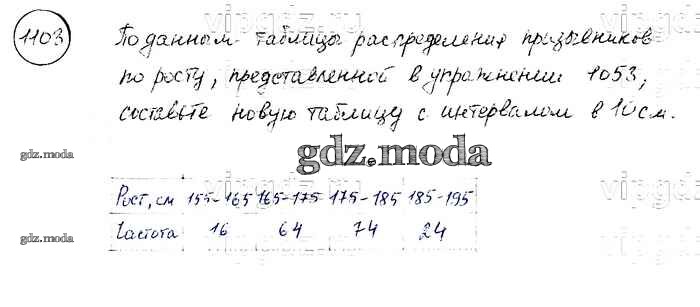 1103
По данным таблицы распределения призывников
по росту, представленной в упражнении 1053,
составьте новую таблицу с интервалом в 10 см.
gdz.moda
gdz.moda
Рост, см 155-165 165-175 175-185 185-195
Частота 16 64 74 24
gdz.moda